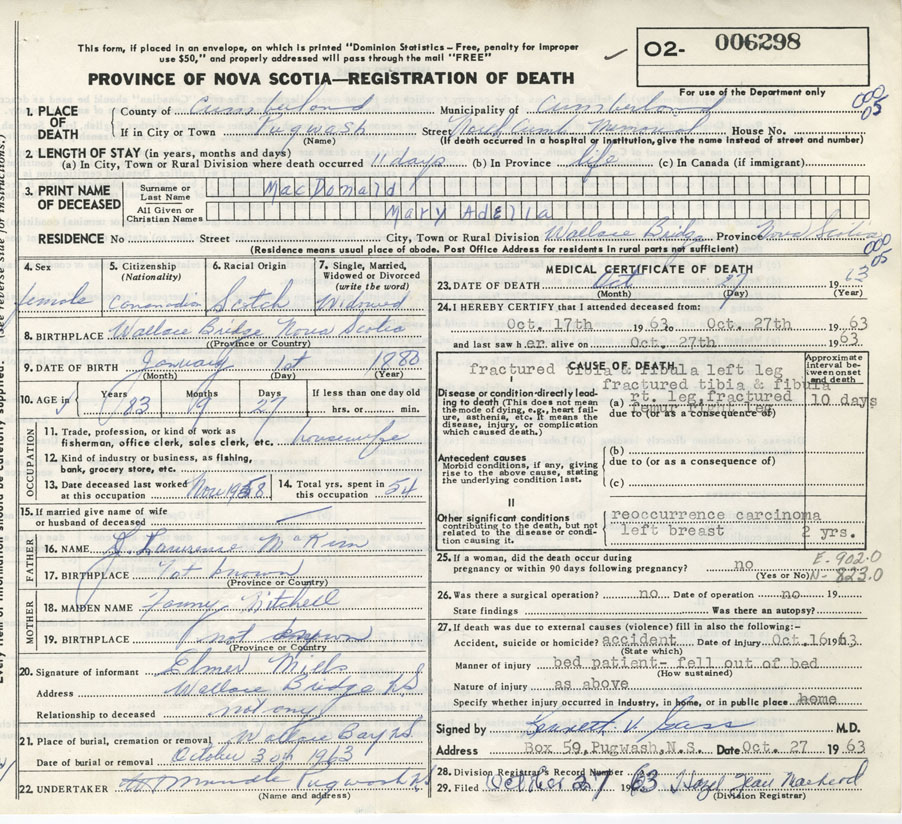 This form, if placed in an envelope, on which is printed "Dominion Statistics - Free, penalty for improper
use $50," and properly addressed will pass through the mail "FREE"
O2- 006298
PROVINCE OF NOVA SCOTIA—REGISTRATION OF DEATH
For use of the Department only
1. PLACE OF DEATH
County of Cumberland Municipality of Cumberland
If in City or Town Pugwash Street North Cumb Memorial House No.
(Name) (If death occurred in a hospital or institution, give the name instead of street and number)
2. LENGTH OF STAY (in years, months and days)
(a) In City, Town or Rural Division where death occurred 11 days (b) In Province life (c) In Canada (if immigrant)
3. PRINT NAME OF DECEASED
Surname or Last Name MacDonald
All Given or Christian Names Mary Adella
RESIDENCE No Street City, Town or Rural Division Wallace Bridge Province Nova Scotia
(Residence means usual place of abode. Post Office Address for residents in rural parts not sufficient)
4. Sex female
5. Citizenship (Nationality) Canadian
6. Racial Origin Scotch
7. Single, Married, Widowed or Divorced (write the word) Widowed
8. BIRTHPLACE Wallace Bridge Nova Scotia
(Province or Country)
9. DATE OF BIRTH January 1st 1880
(Month) (Day) (Year)
10. AGE in Years 83 Months 9 Days 27 If less than one day old
hrs. or min.
OCCUPATION
11. Trade, profession, or kind of work as
fisherman, office clerk, sales clerk, etc. housewife
12. Kind of industry or business, as fishing,
bank, grocery store, etc.
13. Date deceased last worked
at this occupation Nov 1958
14. Total yrs. spent in
this occupation 54
15. If married give name of wife
or husband of deceased —
FATHER
16. NAME J. Lawrence McKim
17. BIRTHPLACE not known
(Province or Country)
MOTHER
18. MAIDEN NAME Fanny Mitchell
19. BIRTHPLACE not known
(Province or Country)
20. Signature of informant Elmer Mills
Address Wallace Bridge N.S
Relationship to deceased not any
21. Place of burial, cremation or removal Wallace Bay N.S.
Date of burial or removal October 30th 1963
22. UNDERTAKER Pugwash N.S
(Name and address)
MEDICAL CERTIFICATE OF DEATH
23. DATE OF DEATH Oct 27 1963
(Month) (Day) (Year)
24. I HEREBY CERTIFY that I attended deceased from:
Oct. 17th 1963 to Oct. 27th 1963
and last saw her alive on Oct. 27th 1963
CAUSE OF DEATH
Approximate interval between onset and death
fractured tibia & fibula left leg
fractured tibia & fibula
I
Disease or condition directly leading to death (This does not mean the mode of dying, e.g., heart failure, asthenia, etc. It means the disease, injury, or complication which caused death.)
(a) rt. leg, fractured 10 days
due to (or as a consequence of)
femur right leg
Antecedent causes
Morbid conditions, if any, giving rise to the above cause, stating the underlying condition last.
(b)
due to (or as a consequence of)
(c)
II
Other significant conditions
contributing to the death, but not related to the disease or condition causing it.
reoccurrence carcinoma
left breast 2 yrs.
25. If a woman, did the death occur during
pregnancy or within 90 days following pregnancy? no
(Yes or No)
E-902.0
N-823.0
26. Was there a surgical operation? no Date of operation no 19
State findings Was there an autopsy?
27. If death was due to external causes (violence) fill in also the following:-
Accident, suicide or homicide? accident Date of injury Oct.16 1963
(State which)
Manner of injury bed patient- fell out of bed
(How sustained)
Nature of injury as above
Specify whether injury occurred in industry, in home, or in public place home
Signed by Kenneth V. Gass M.D.
Address Box 59, Pugwash, N.S. Date Oct. 27 1963
28. Division Registrar's Record Number
29. Filed October 27 1963 Hazel Jean
(Division Registrar)